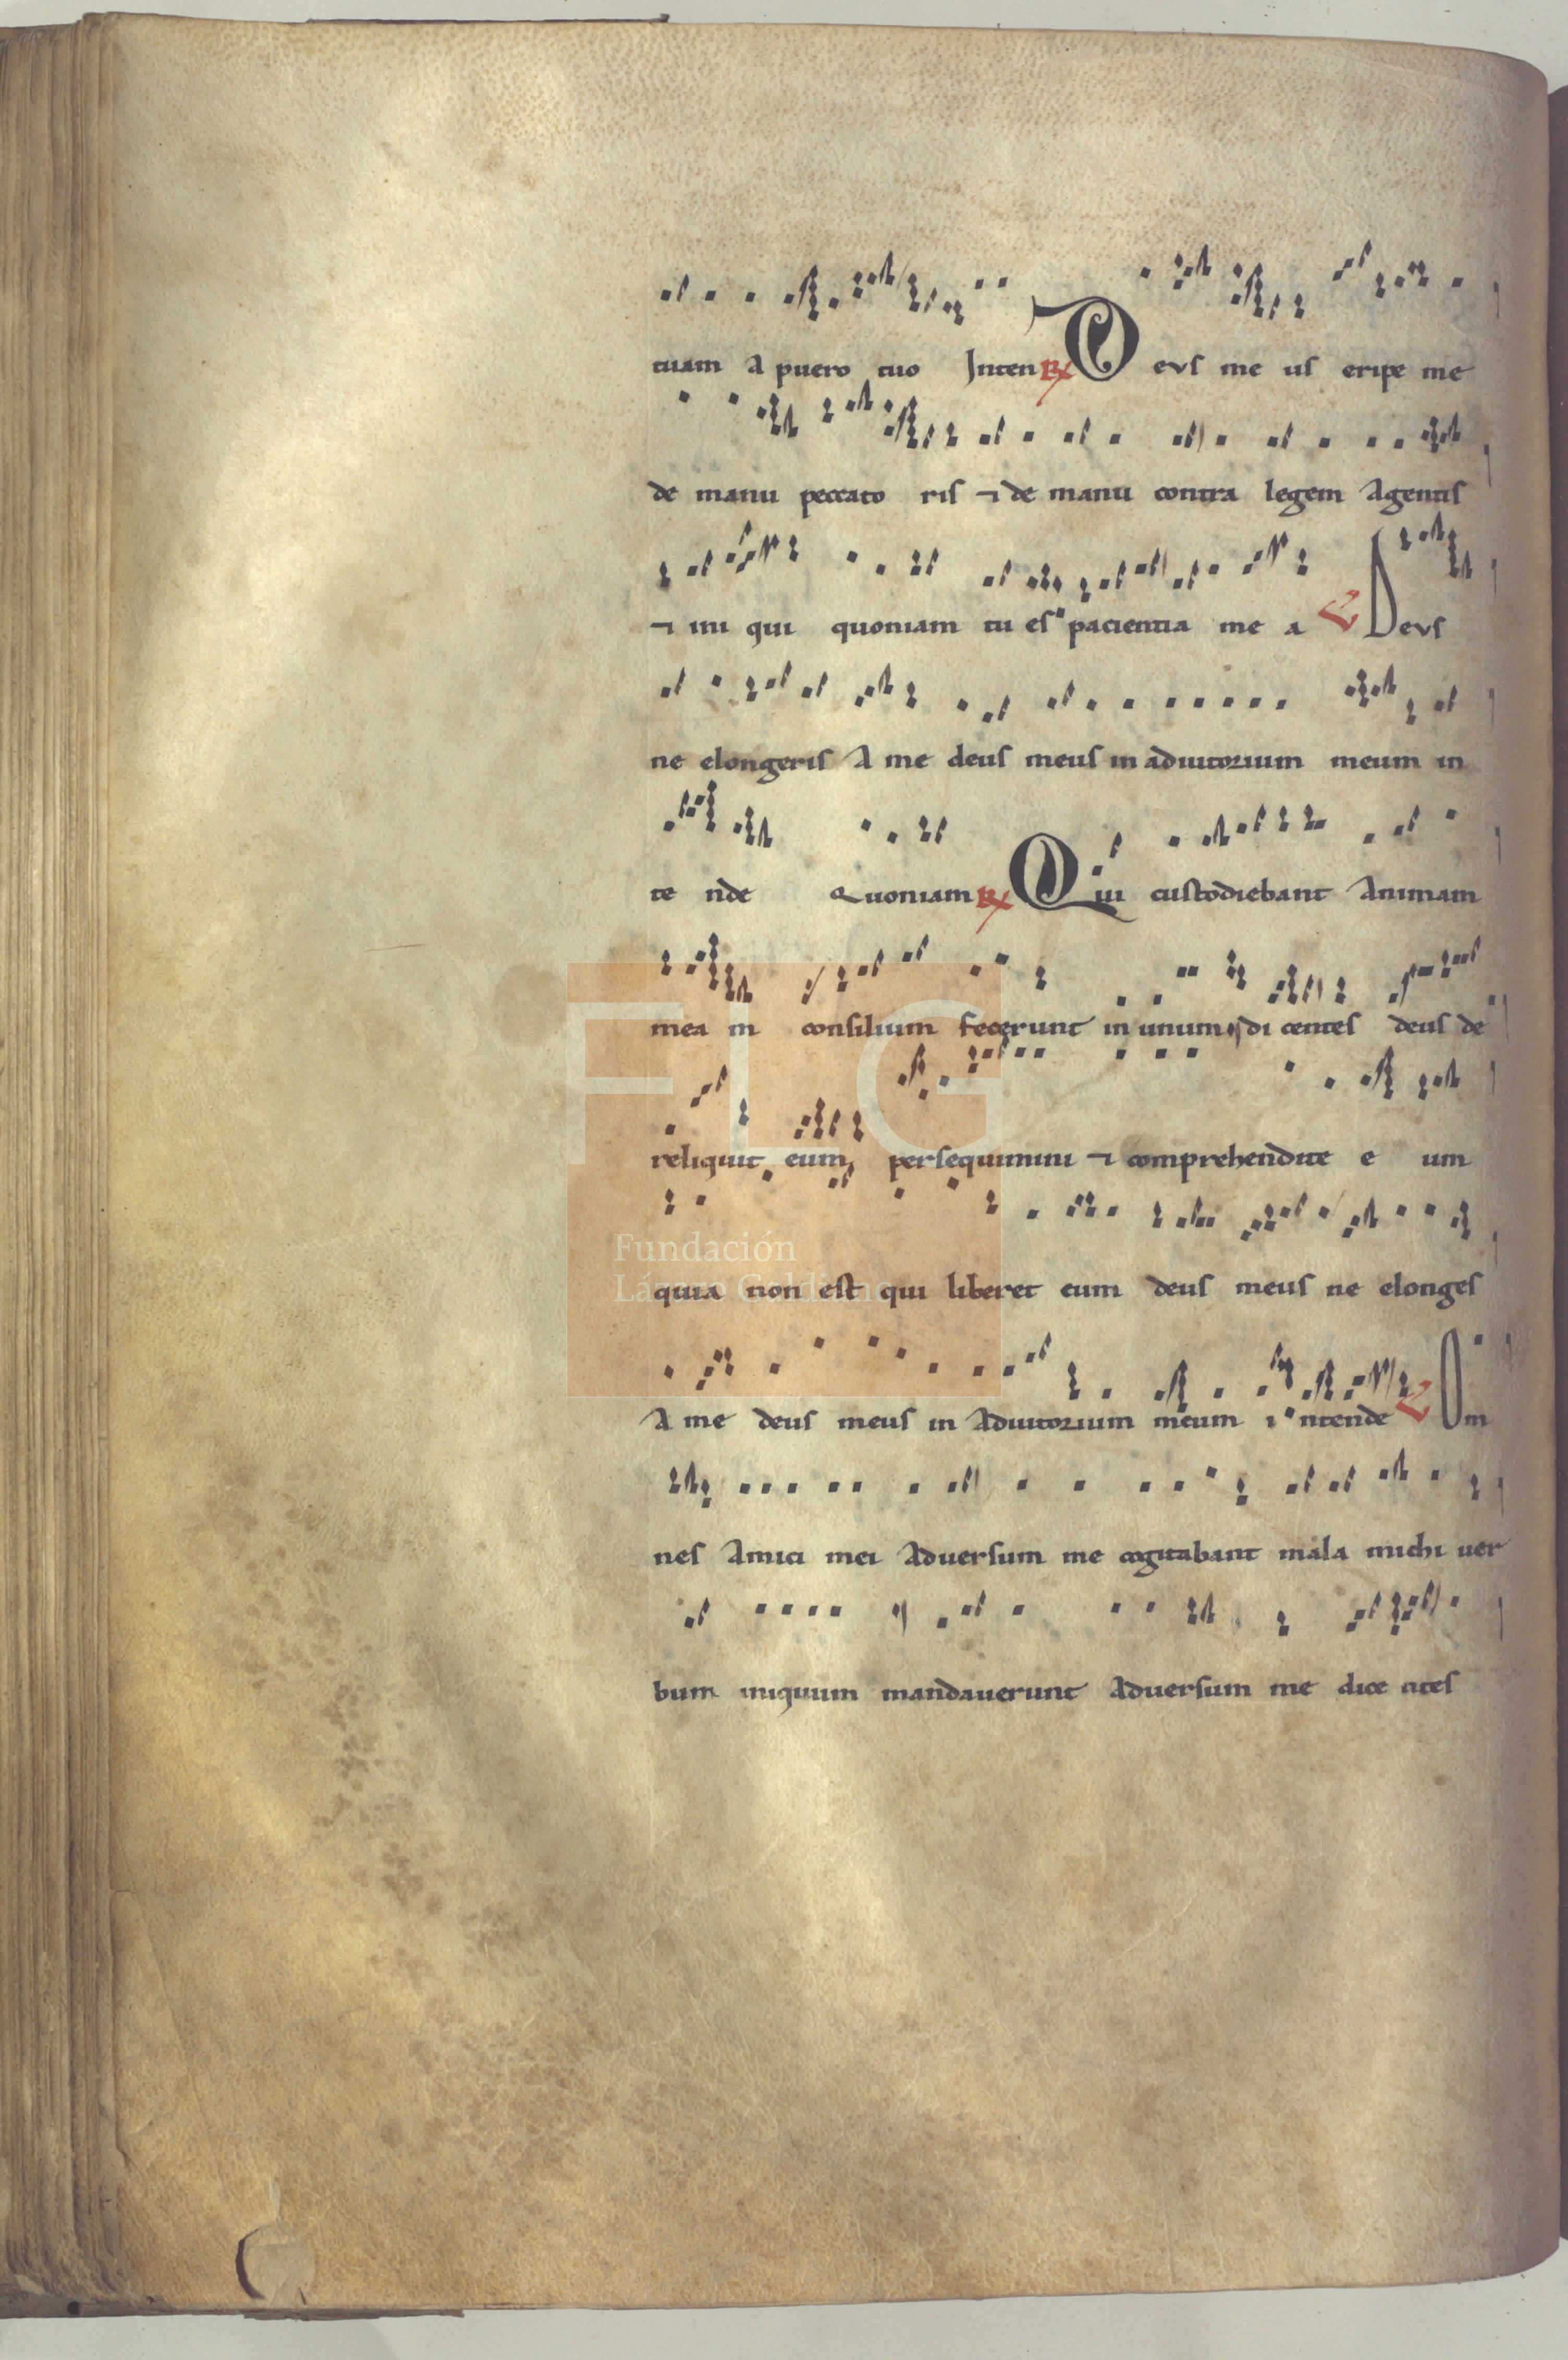 tuam a puero tuo Inten ℟ Deus me us eripe me
de manu peccato ris ⁊ de manu contra legem agentis
⁊ ini qui quoniam tu es pacientia me a ℣ Deus
ne elongeris a me deus meus in adiutorium meum in
te nde Quoniam ℟ Qui custodiebant animam
mea in consilium fecerunt in unum di centes deus de
reliquit eum, persequimini ⁊ comprehendite e um
FLG
Fundación
Lázaro Galdiano
quia non est qui liberet eum deus meus ne elonges
A me deus meus in adiutorium meum i ntende ℣ Om
nes amici mei aduersum me cogitabant mala michi uer
bum iniquum mandauerunt aduersum me dice ntes